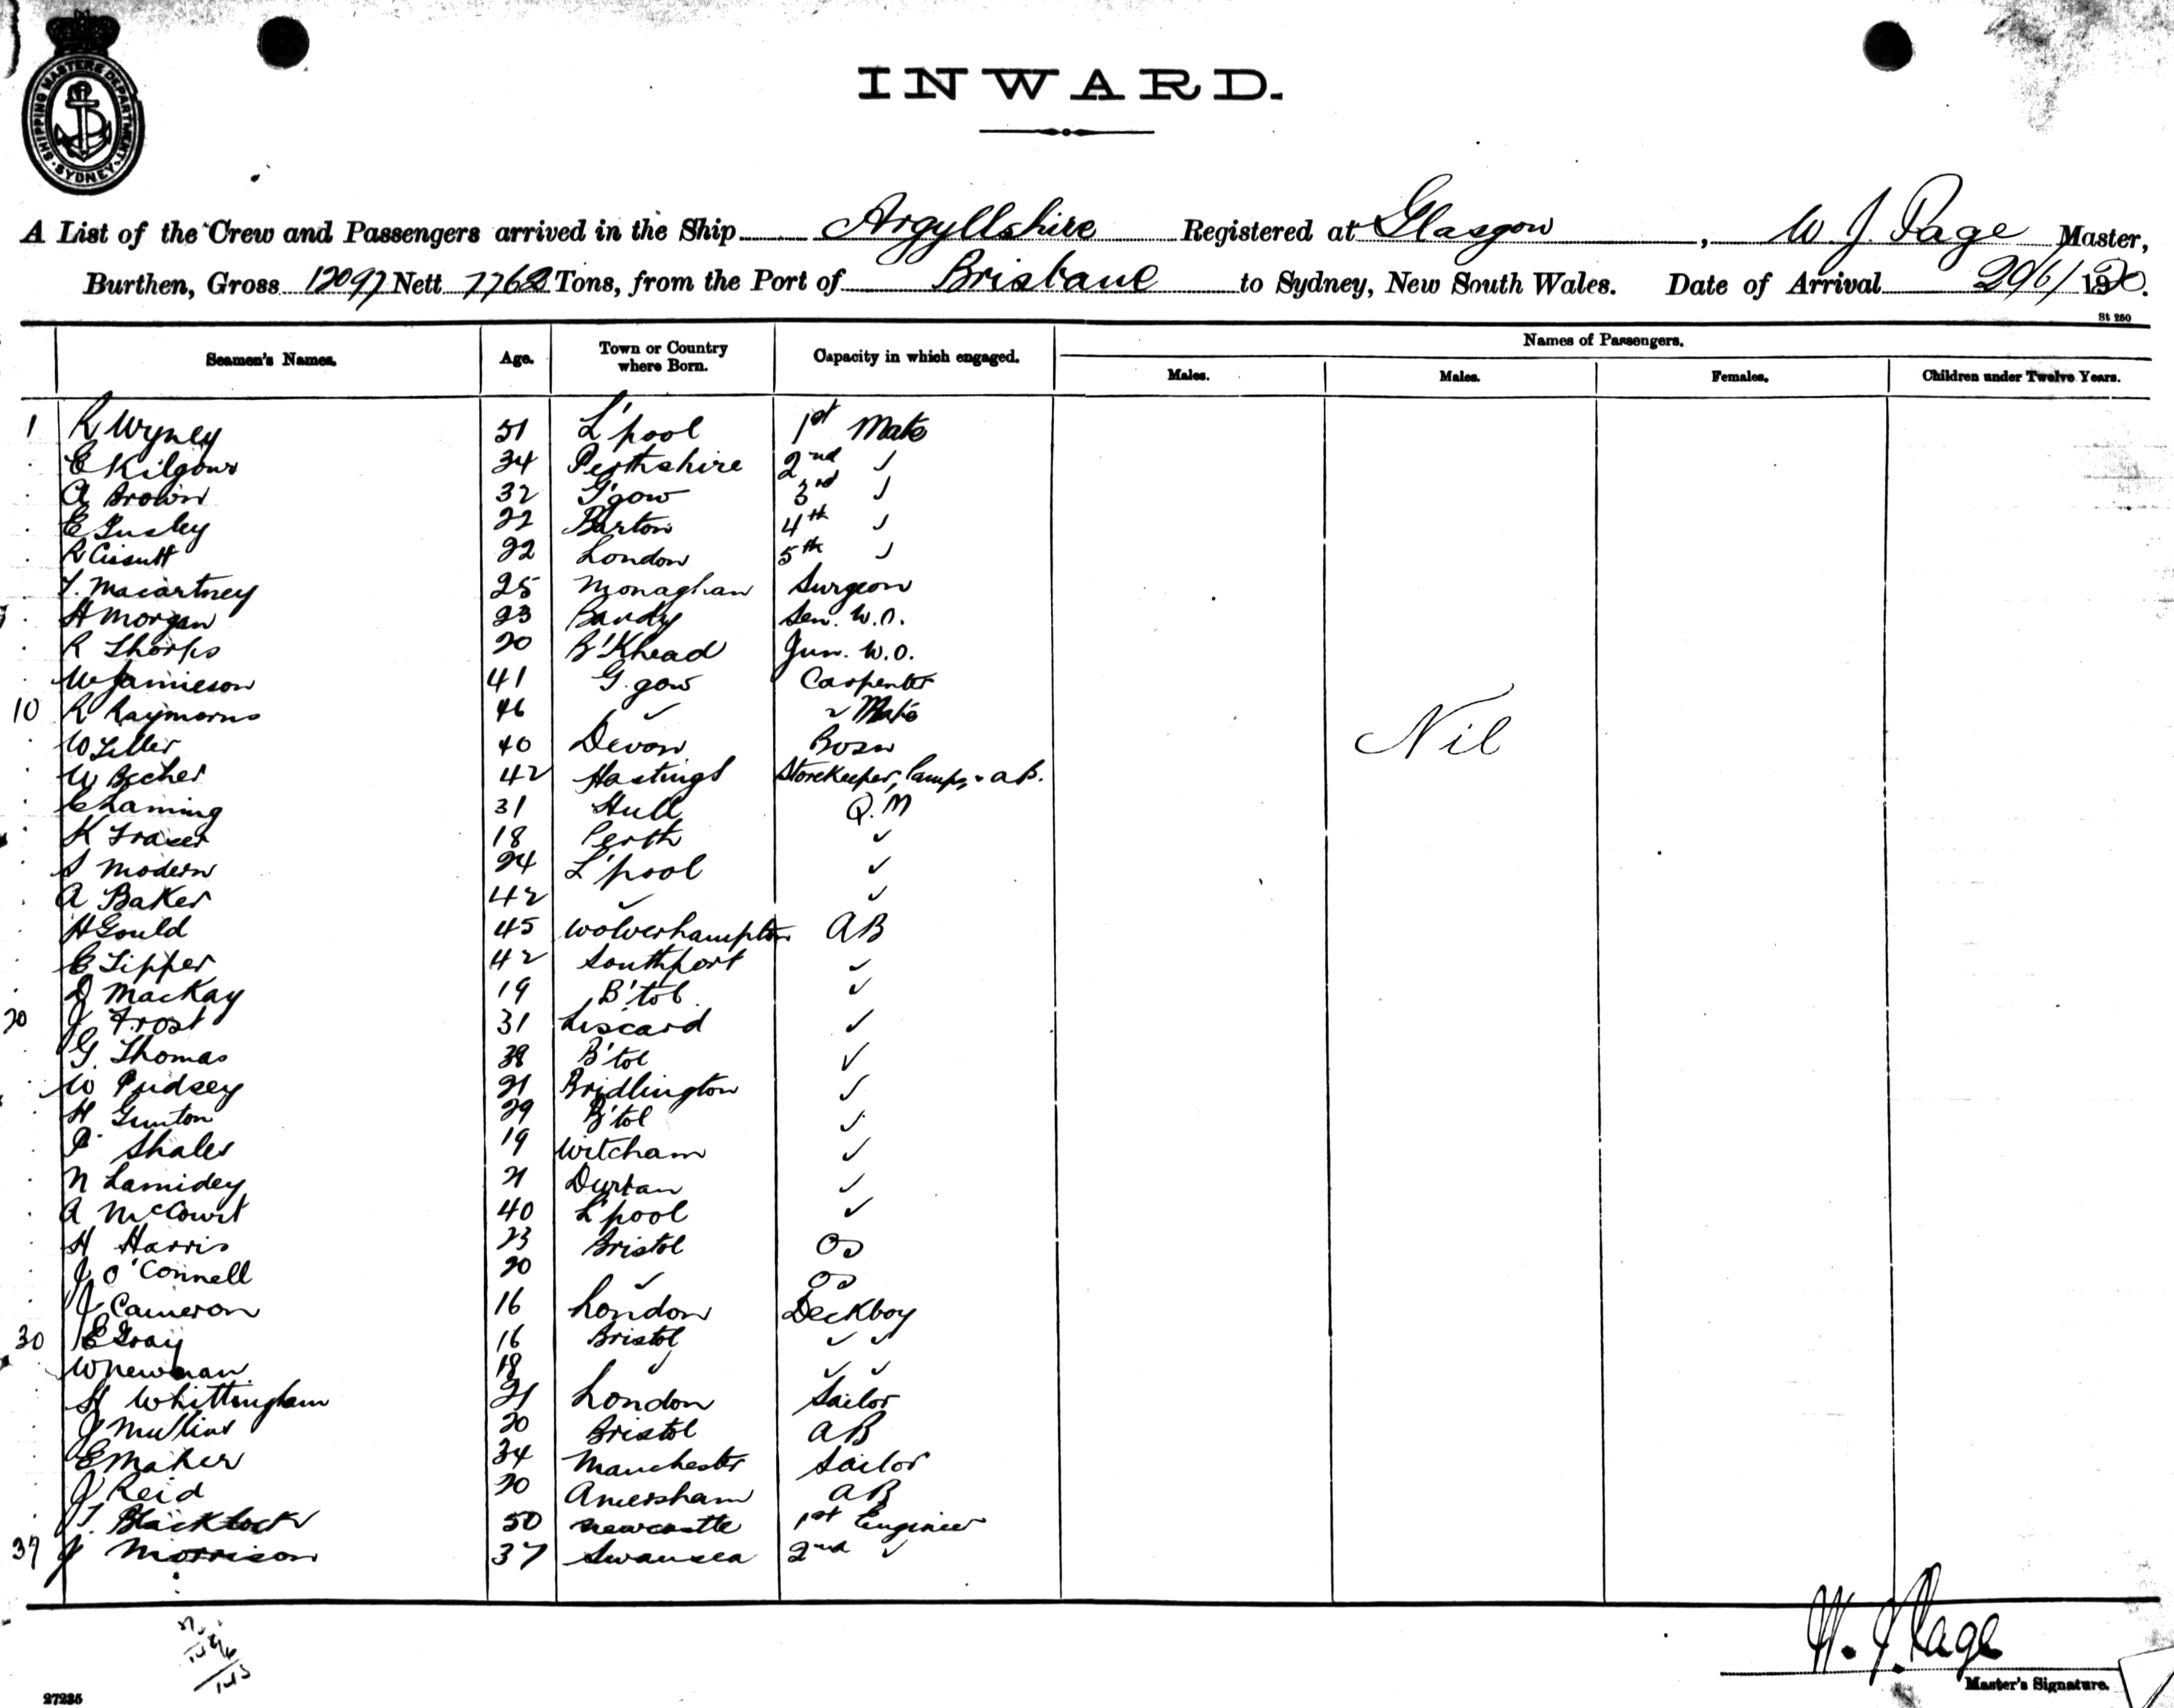 SHIPPING MASTERS DEPARTMENT. SYDNEY
INWARD.
A List of the Crew and Passengers arrived in the Ship Argyllshire Registered at Glasgow, W. J. Page Master,
Burthen, Gross 12097 Nett 7762 Tons, from the Port of Brisbane to Sydney, New South Wales. Date of Arrival 29/6/1920.
St 250
Seamen's Names. Age. Town or Country where Born. Capacity in which engaged. Names of Passengers.
Males. Males. Females. Children under Twelve Years.
1 R Wyney 51 L'pool 1st Mate
E Kilgour 34 Perthshire 2nd ✓
A Brown 32 G'gow 3rd ✓
E Lusley 22 Barton 4th ✓
R 22 London 5th ✓
T. Macartney 25 Monaghan Surgeon
H Morgan 23 Sen. W.O.
R Thorps 20 B'Khead Jun. W.O.
W Jamieson 41 G.gow Carpenter
10 R Raymorns 46 ✓ ✓ Mate
W Liller 40 Devon Bosn
W Becher 42 Hastings Storekeeper, lamps, - aB.
C Laming 31 Hull Q.M
K Fraser 18 Perth ✓
S Modern 24 L'pool ✓
A Baker 42 ✓ ✓
H Gould 45 Wolverhampton AB
E Tipper 42 Southport ✓
D MacKay 19 B'tol ✓
20 J Frost 31 Liscard ✓
G. Thomas 38 B'tol ✓
W Pudsey 21 Bridlington ✓
H Gunton 29 B'tol ✓
P Shales 19 Witcham ✓
N Lamidey 21 Durban ✓
A McCourt 40 L'pool ✓
H Harris 23 Bristol OS
J O'Connell 20 ✓ OS
J Cameron 16 London Deckboy
30 E Gray 16 Bristol ✓ ✓
W Newman. 18 ✓ ✓ ✓
H Whittingham 21 London Sailor
J Mullins 20 Bristol AB
E Maher 34 Manchester Sailor
J Reid 20 Amersham aB
T. Blacklock 50 Newcastle 1st Engineer
37 J Morrison 37 Swansea 2nd ✓
Nil
W. J. Page
Master's Signature.
27235